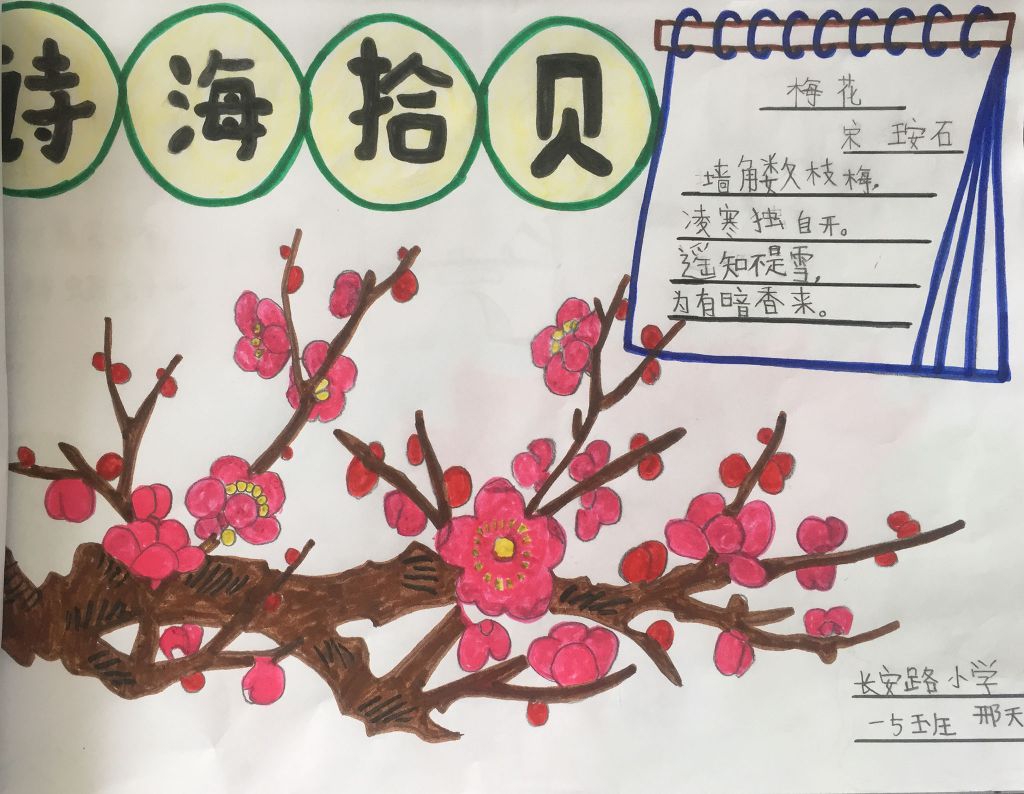 诗海拾贝
梅花
宋 王安石
墙角数枝梅，
凌寒独自开。
遥知不是雪，
为有暗香来。
长安路小学
一5班 邢天